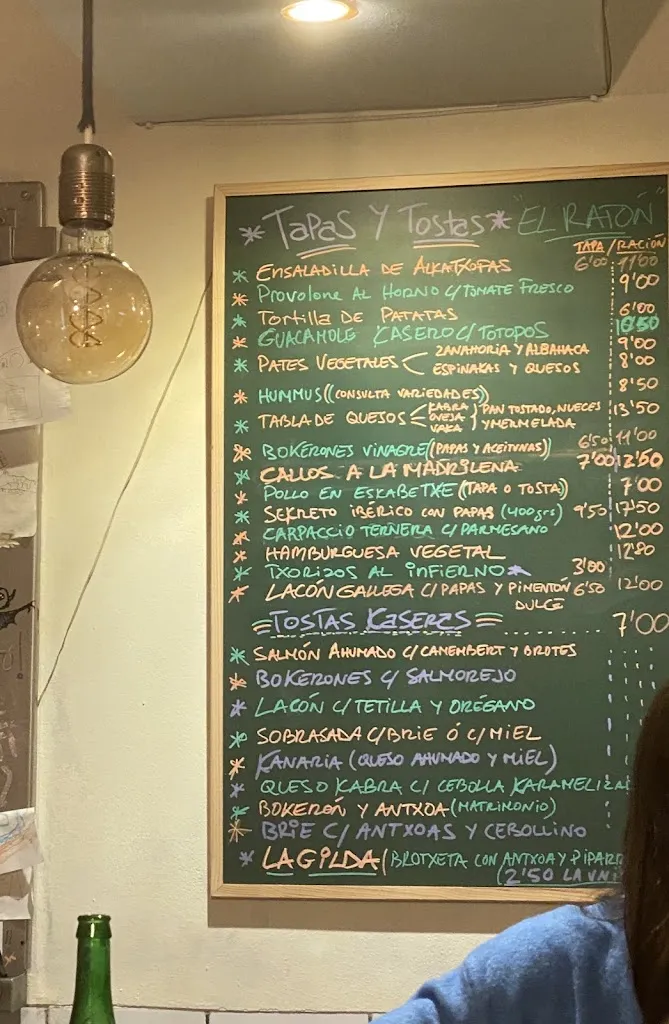 * TAPAS Y TOSTAS * "EL RATÓN"
TAPA / RACIÓN
* ENSALADILLA DE ALKATXOFAS 6'00 11'00
* PROVOLONE AL HORNO C/ TOMATE FRESCO 9'00
* TORTILLA DE PATATAS 6'00
* GUACAMOLE KASERO C/ TOTOPOS 10'50
9'00
* PATES VEGETALES < ZANAHORIA Y ALBAHACA 8'00
ESPINAKAS Y QUESOS
* HUMMUS ((CONSULTA VARIEDADES) 8'50
* TABLA DE QUESOS < KABRA OVEJA VAKA } PAN TOSTADO, NUECES Y MERMELADA 13'50
* BOKERONES VINAGRE (PAPAS Y ACEITUNAS) 6'50 11'00
* CALLOS A LA MADRILENA 7'00 12'50
* POLLO EN ESKABETXE (TAPA O TOSTA) 7'00
* SEKRETO IBÉRICO CON PAPAS (400grs) 9'50 17'50
* CARPACCIO TERNERA C/ PARMESANO 12'00
* HAMBURGUESA VEGETAL 12'80
* TXORIZOS AL INFIERNO * 3'00
* LACÓN GALLEGA C/ PAPAS Y PIMENTÓN DULCE 6'50 12'00
= TOSTAS KASERAS = 7'00
* SALMÓN AHUMADO C/ CAMEMBERT Y BROTES
* BOKERONES C/ SALMOREJO
* LACÓN C/ TETILLA Y ORÉGANO
* SOBRASADA C/ BRIE Ó C/ MIEL
* KANARIA (QUESO AHUMADO Y MIEL)
* QUESO KABRA C/ CEBOLLA KARAMELIZA
* BOKERÓN Y ANTXOA (MATRIMONIO)
* BRIE C/ ANTXOAS Y CEBOLLINO
* LA GILDA (BROTXETA CON ANTXOA Y PIPARR
(2'50 LA UNI